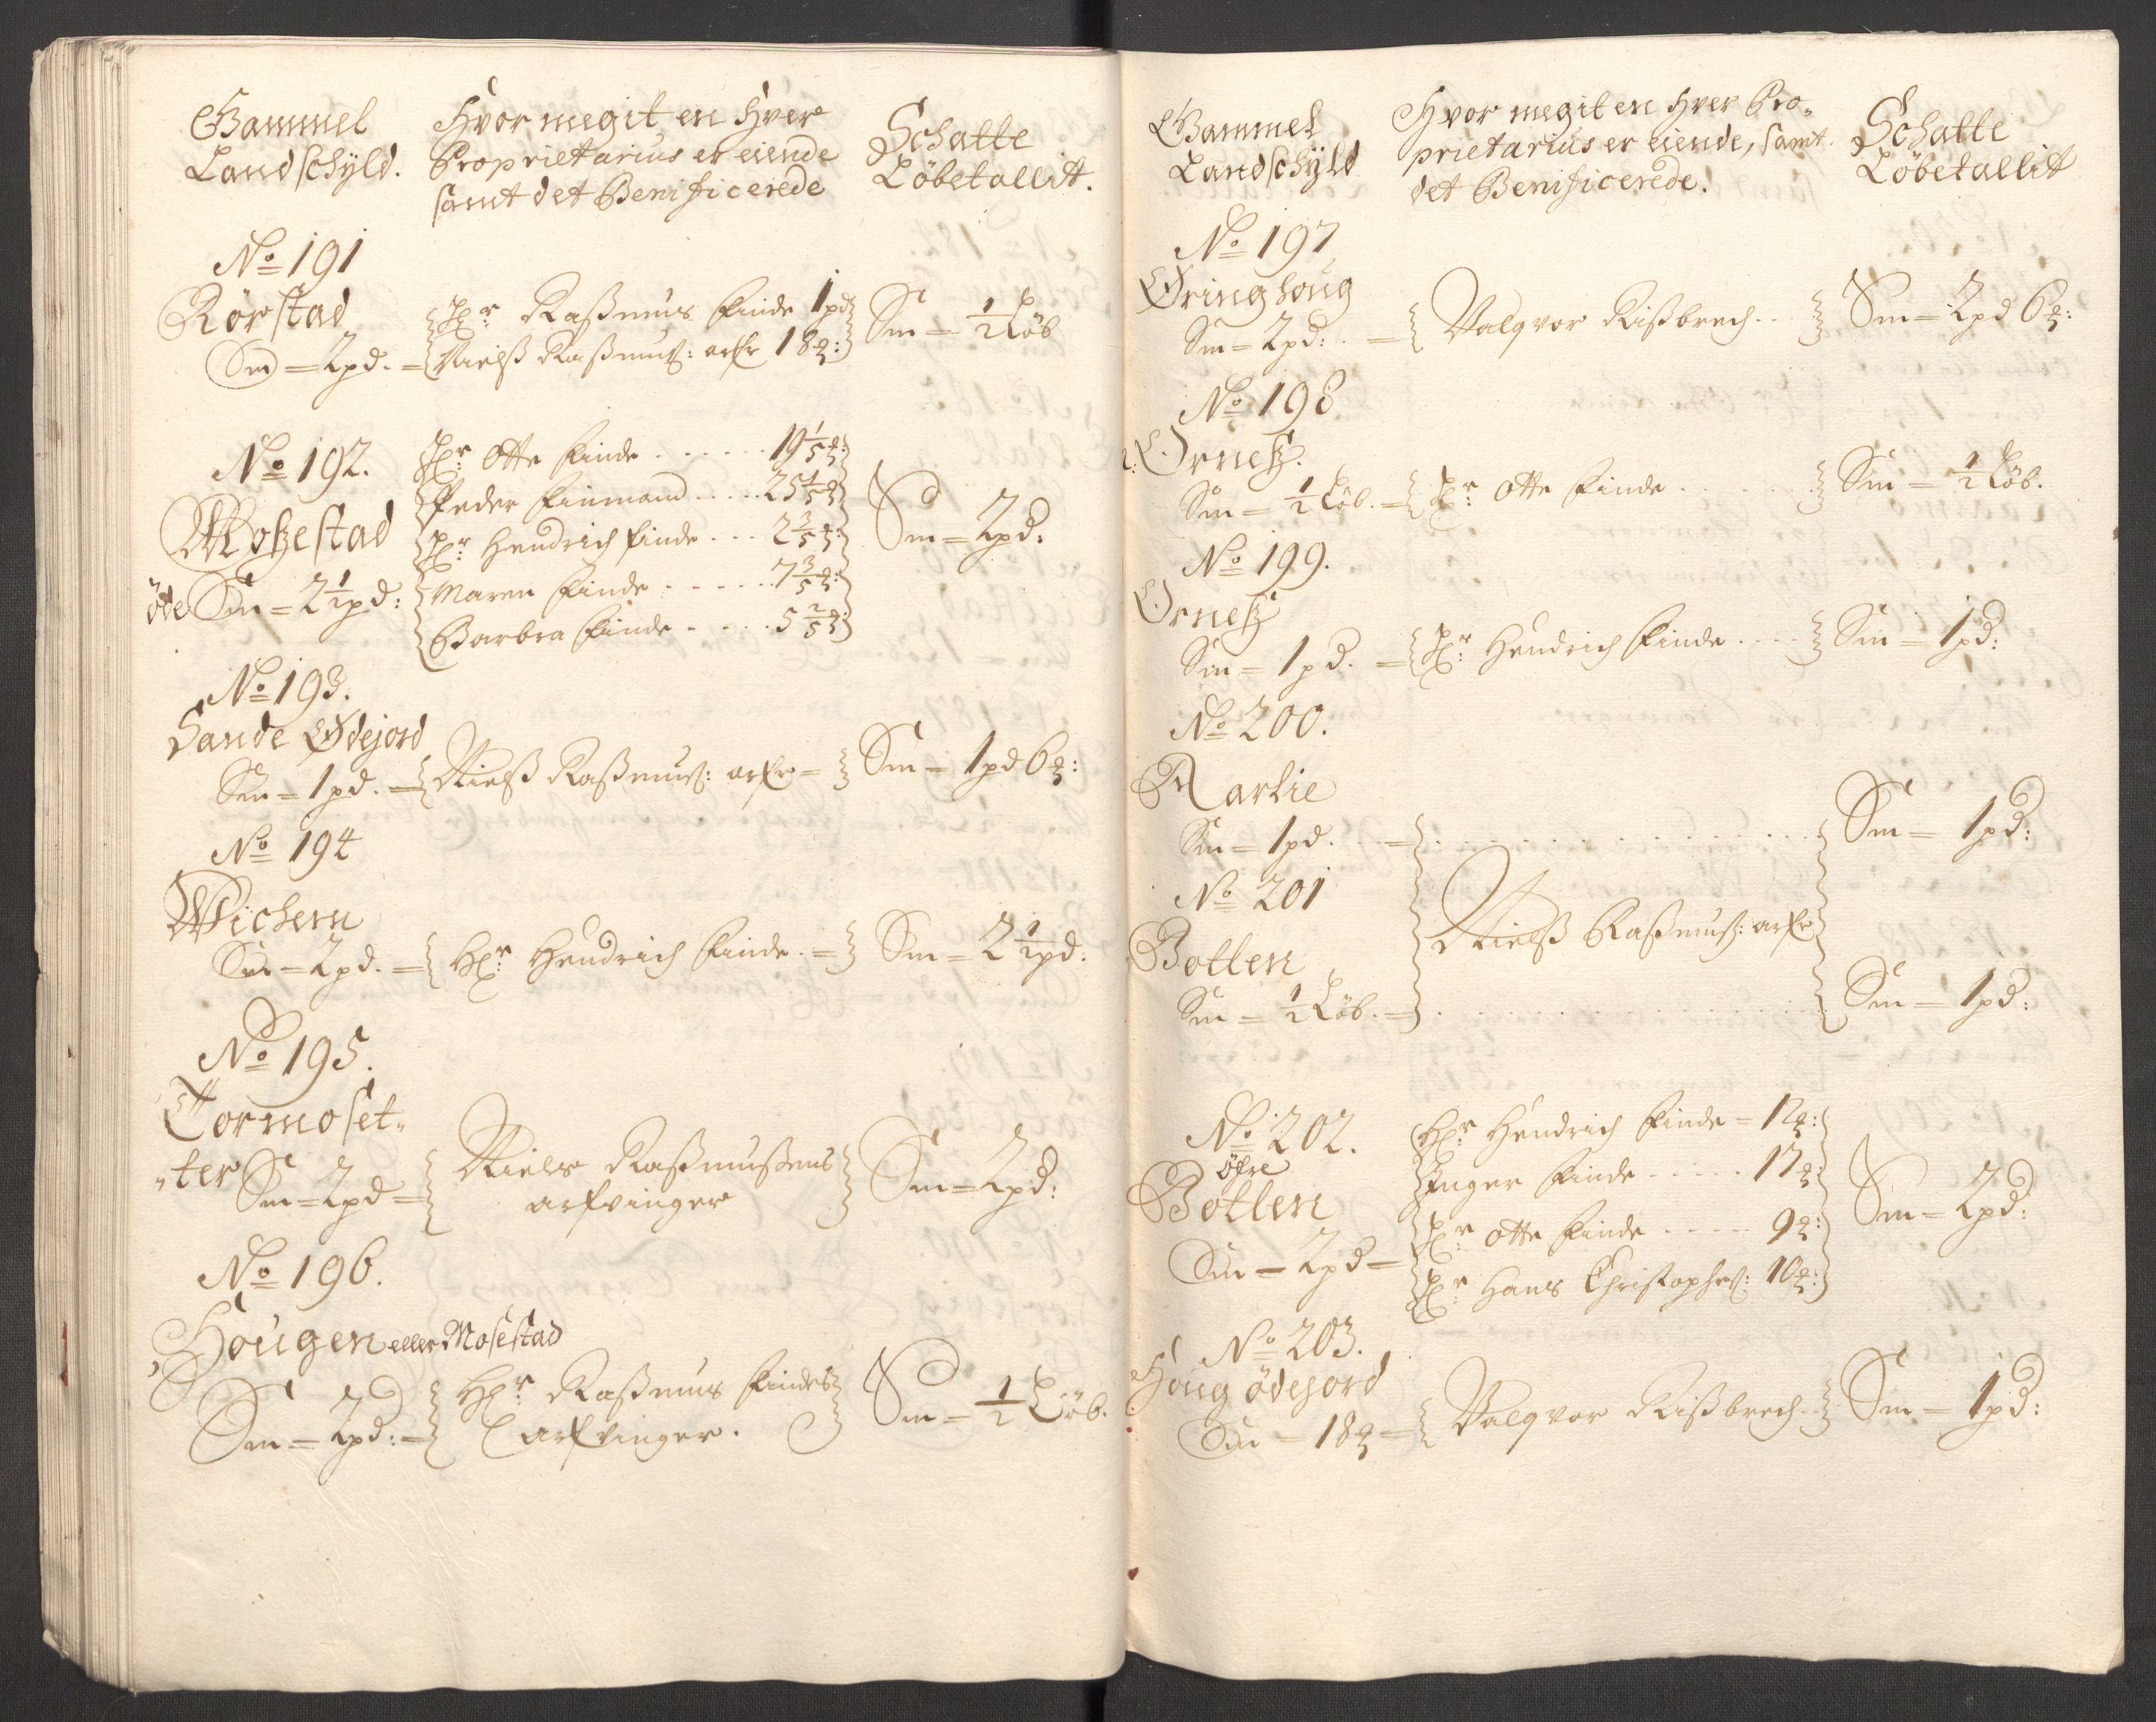 Gammel
Landschyld.
Hvor megit en Hver
Proprietarius er eiende
samt det Benificerede
Schatte
Löbetallit.
No 191
Rörstad
Sm = 2 pd. =
Hr: Raßmus Finde 1 pd
Nielß Raßmuß: arfr 18 ₰:
Sm = 1/2 Löb
No 192.
Motzestad
öde Sm = 2 1/2 pd:
Hr: Otte Finde ...... 19 1/5 ₰:
Peder Finmand ..... 25 1/5 ₰
Hr: Hendrich Finde ... 2 3/5 ₰:
Maren Finde ...... 7 3/5 ₰:
Barbra Finde .... 5 2/5 ₰
Sm = 2 pd:
No 193.
Sande Ødejord
Sm = 1 pd. =
Nielß Raßmuß: arfr =
Sm = 1 pd 6 ₰:
No 194
Wichern
Sm = 2 pd. =
Hr: Hendrich Finde. =
Sm = 2 1/2 pd:
No 195.
Tormoset„
„ter Sm = 2 pd =
Niels Raßmußens
arfvinger
Sm = 2 pd:
No 196.
Hougen eller Mosestad
Sm = 2 pd: =
Hr: Raßmus Findes
arfvinger.
Sm = 1/2 Löb.
Gammel
Landschyld
Hvor megit en Hver Pro„
prietarius er eiende, samt
det Benificerede.
Schatte
Löbetallit
No 197
Øringhoug
Sm = 2 pd: . =
Valqvor Rißbrech ..
Sm = 2 pd 6 ₰:
No 198
Orneß.
Sm = 1/2 Löb. =
Hr: Otte Finde .....
Sm = 1/2 Löb.
No 199.
Orneß
Sm = 1 pd. =
Hr: Hendrich Finde ....
Sm = 1 pd:
No 200.
Marlie
Sm = 1 pd. . =
Sm = 1 pd:
No 201
Botten
Sm = 1/2 Löb. =
Nielß Raßmuß: arfr
Sm = 1 pd:
No 202.
öfre
Botten
Sm = 2 pd =
Hr: Hendrich Finde = 12 ₰:
Inger Finde ..... 17 ₰:
Hr: Otte Finde ..... 9 ₰:
Hr: Hans Christophß: 10 ₰:
Sm = 2 pd:
No 203.
Houg ödejord
Sm = 18 ₰ =
Valqvor Rißbrech ..
Sm = 1 pd: